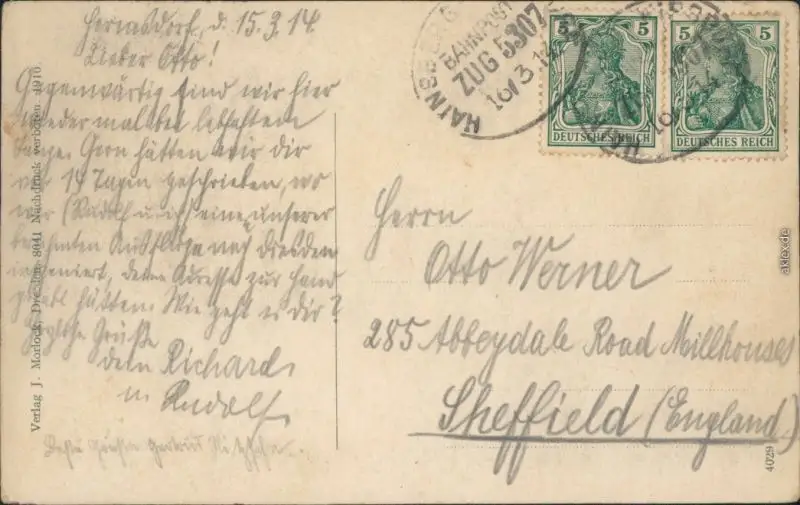 Hermsdorf, d. 15.3.14
Lieber Otto!
Gegenwärtig sind wir hier
wieder mal bei lebhaftem
Gern hätten wir dir
vor 14 Tagen geschrieben, wo
wir (Rudolf u. ich) eine unserer
berühmten Ausflüge nach Dresden
deine Adresse zur Hand
hätten. Wie geht es dir?
Grüße
dein Richard
u. Rudolf
Beste Grüße
Verlag J. Morlock, Dresden. 8041 Nachdruck verboten. 1910.
HAINSBERG
BAHNPOST
ZUG 5307
16/3 14
5 5
DEUTSCHES REICH
5 5
DEUTSCHES REICH
Herrn
Otto Werner
285 Abbeydale Road Millhouses
Sheffield (England)
4029
akpool.de